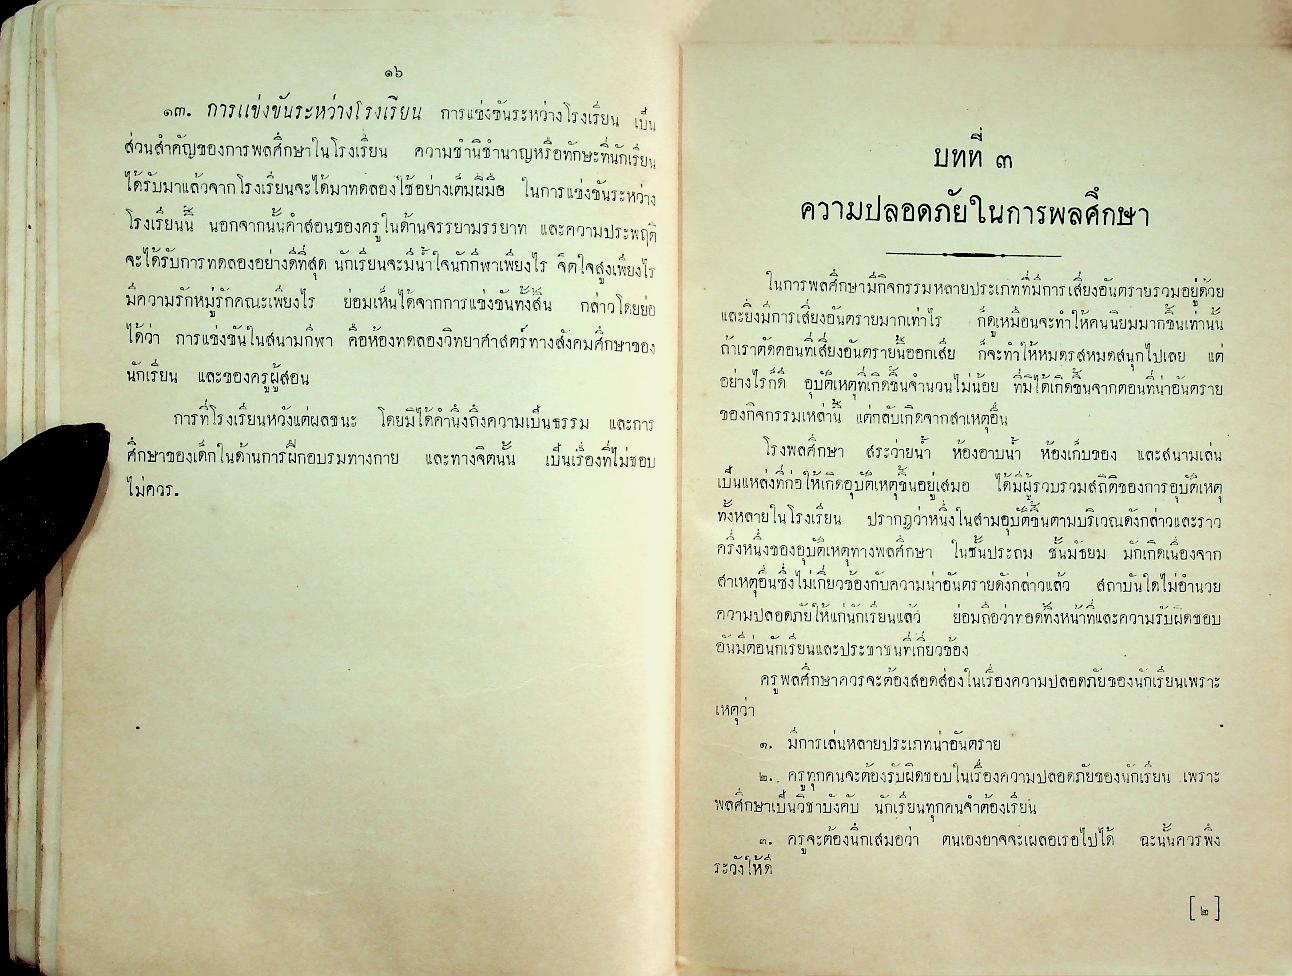 ๑๖
๑๓. การแข่งขันระหว่างโรงเรียน การแข่งขันระหว่างโรงเรียน เป็น
ส่วนสำคัญของการพลศึกษาในโรงเรียน ความชำนิชำนาญหรือทักษะที่นักเรียน
ได้รับมาแล้วจากโรงเรียนจะได้มาทดลองใช้อย่างเต็มฝีมือ ในการแข่งขันระหว่าง
โรงเรียนนี้ นอกจากนั้นคำสอนของครูในด้านจรรยามรรยาท และความประพฤติ
จะได้รับการทดลองอย่างดีที่สุด นักเรียนจะมีน้ำใจนักกีฬาเพียงไร จิตใจสูงเพียงไร
มีความรักหมู่รักคณะเพียงไร ย่อมเห็นได้จากการแข่งขันทั้งสิ้น กล่าวโดยย่อ
ได้ว่า การแข่งขันในสนามกีฬา คือห้องทดลองวิทยาศาสตร์ทางสังคมศึกษาของ
นักเรียน และของครูผู้สอน
การที่โรงเรียนหวังแต่ผลชนะ โดยมิได้คำนึงถึงความเป็นธรรม และการ
ศึกษาของเด็กในด้านการฝึกอบรมทางกาย และทางจิตนั้น เป็นเรื่องที่ไม่ชอบ
ไม่ควร.
บทที่ ๓
ความปลอดภัยในการพลศึกษา
ในการพลศึกษามีกิจกรรมหลายประเภทที่มีการเสี่ยงอันตรายรวมอยู่ด้วย
และยิ่งมีการเสี่ยงอันตรายมากเท่าไร ก็ดูเหมือนจะทำให้คนนิยมมากขึ้นเท่านั้น
ถ้าเราตัดตอนที่เสี่ยงอันตรายนี้ออกเสีย ก็จะทำให้หมดรสหมดสนุกไปเลย แต่
อย่างไรก็ดี อุบัติเหตุที่เกิดขึ้นจำนวนไม่น้อย ที่มิได้เกิดขึ้นจากตอนที่น่าอันตราย
ของกิจกรรมเหล่านี้ แต่กลับเกิดจากสาเหตุอื่น
โรงพลศึกษา สระว่ายน้ำ ห้องอาบน้ำ ห้องเก็บของ และสนามเล่น
เป็นแหล่งที่ก่อให้เกิดอุบัติเหตุขึ้นอยู่เสมอ ได้มีผู้รวบรวมสถิติของการอุบัติเหตุ
ทั้งหลายในโรงเรียน ปรากฏว่าหนึ่งในสามอุบัติขึ้นตามบริเวณดังกล่าวและราว
ครึ่งหนึ่งของอุบัติเหตุทางพลศึกษา ในชั้นประถม ชั้นมัธยม มักเกิดเนื่องจาก
สาเหตุอื่นซึ่งไม่เกี่ยวข้องกับความน่าอันตรายดังกล่าวแล้ว สถาบันใดไม่อำนวย
ความปลอดภัยให้แก่นักเรียนแล้ว ย่อมถือว่าทอดทิ้งหน้าที่และความรับผิดชอบ
อันมีต่อนักเรียนและประชาชนที่เกี่ยวข้อง
ครูพลศึกษาควรจะต้องสอดส่องในเรื่องความปลอดภัยของนักเรียนเพราะ
เหตุว่า
๑. มีการเล่นหลายประเภทน่าอันตราย
๒. ครูทุกคนจะต้องรับผิดชอบในเรื่องความปลอดภัยของนักเรียน เพราะ
พลศึกษาเป็นวิชาบังคับ นักเรียนทุกคนจำต้องเรียน
๓. ครูจะต้องนึกเสมอว่า ตนเองอาจจะเผลอเรอไปได้ ฉะนั้นควรพึง
ระวังให้ดี
[๒]